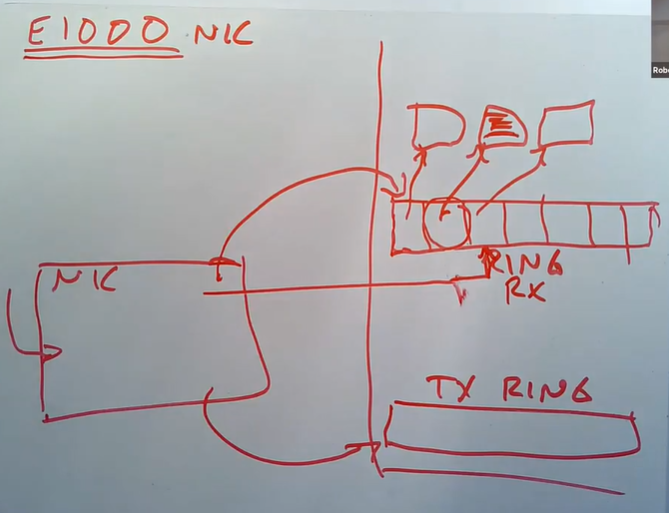 E1000 NIC
Robe
NIC
RING
RX
TX RING